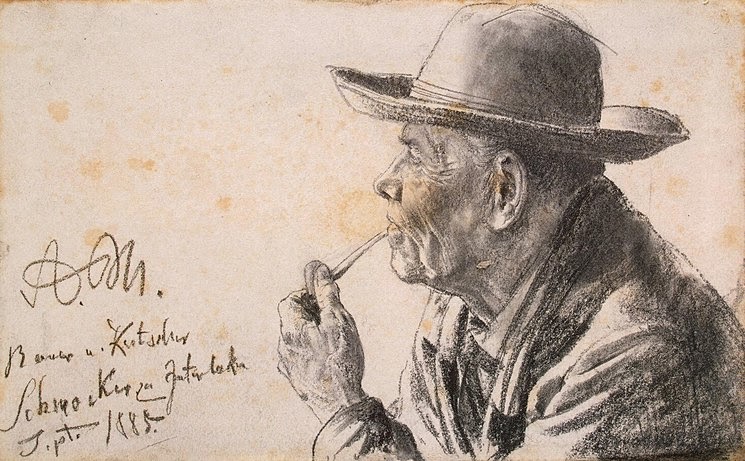 A. M.
Bauer u. Kutscher
Schmocker zu Interlaken
Sept. 1885.